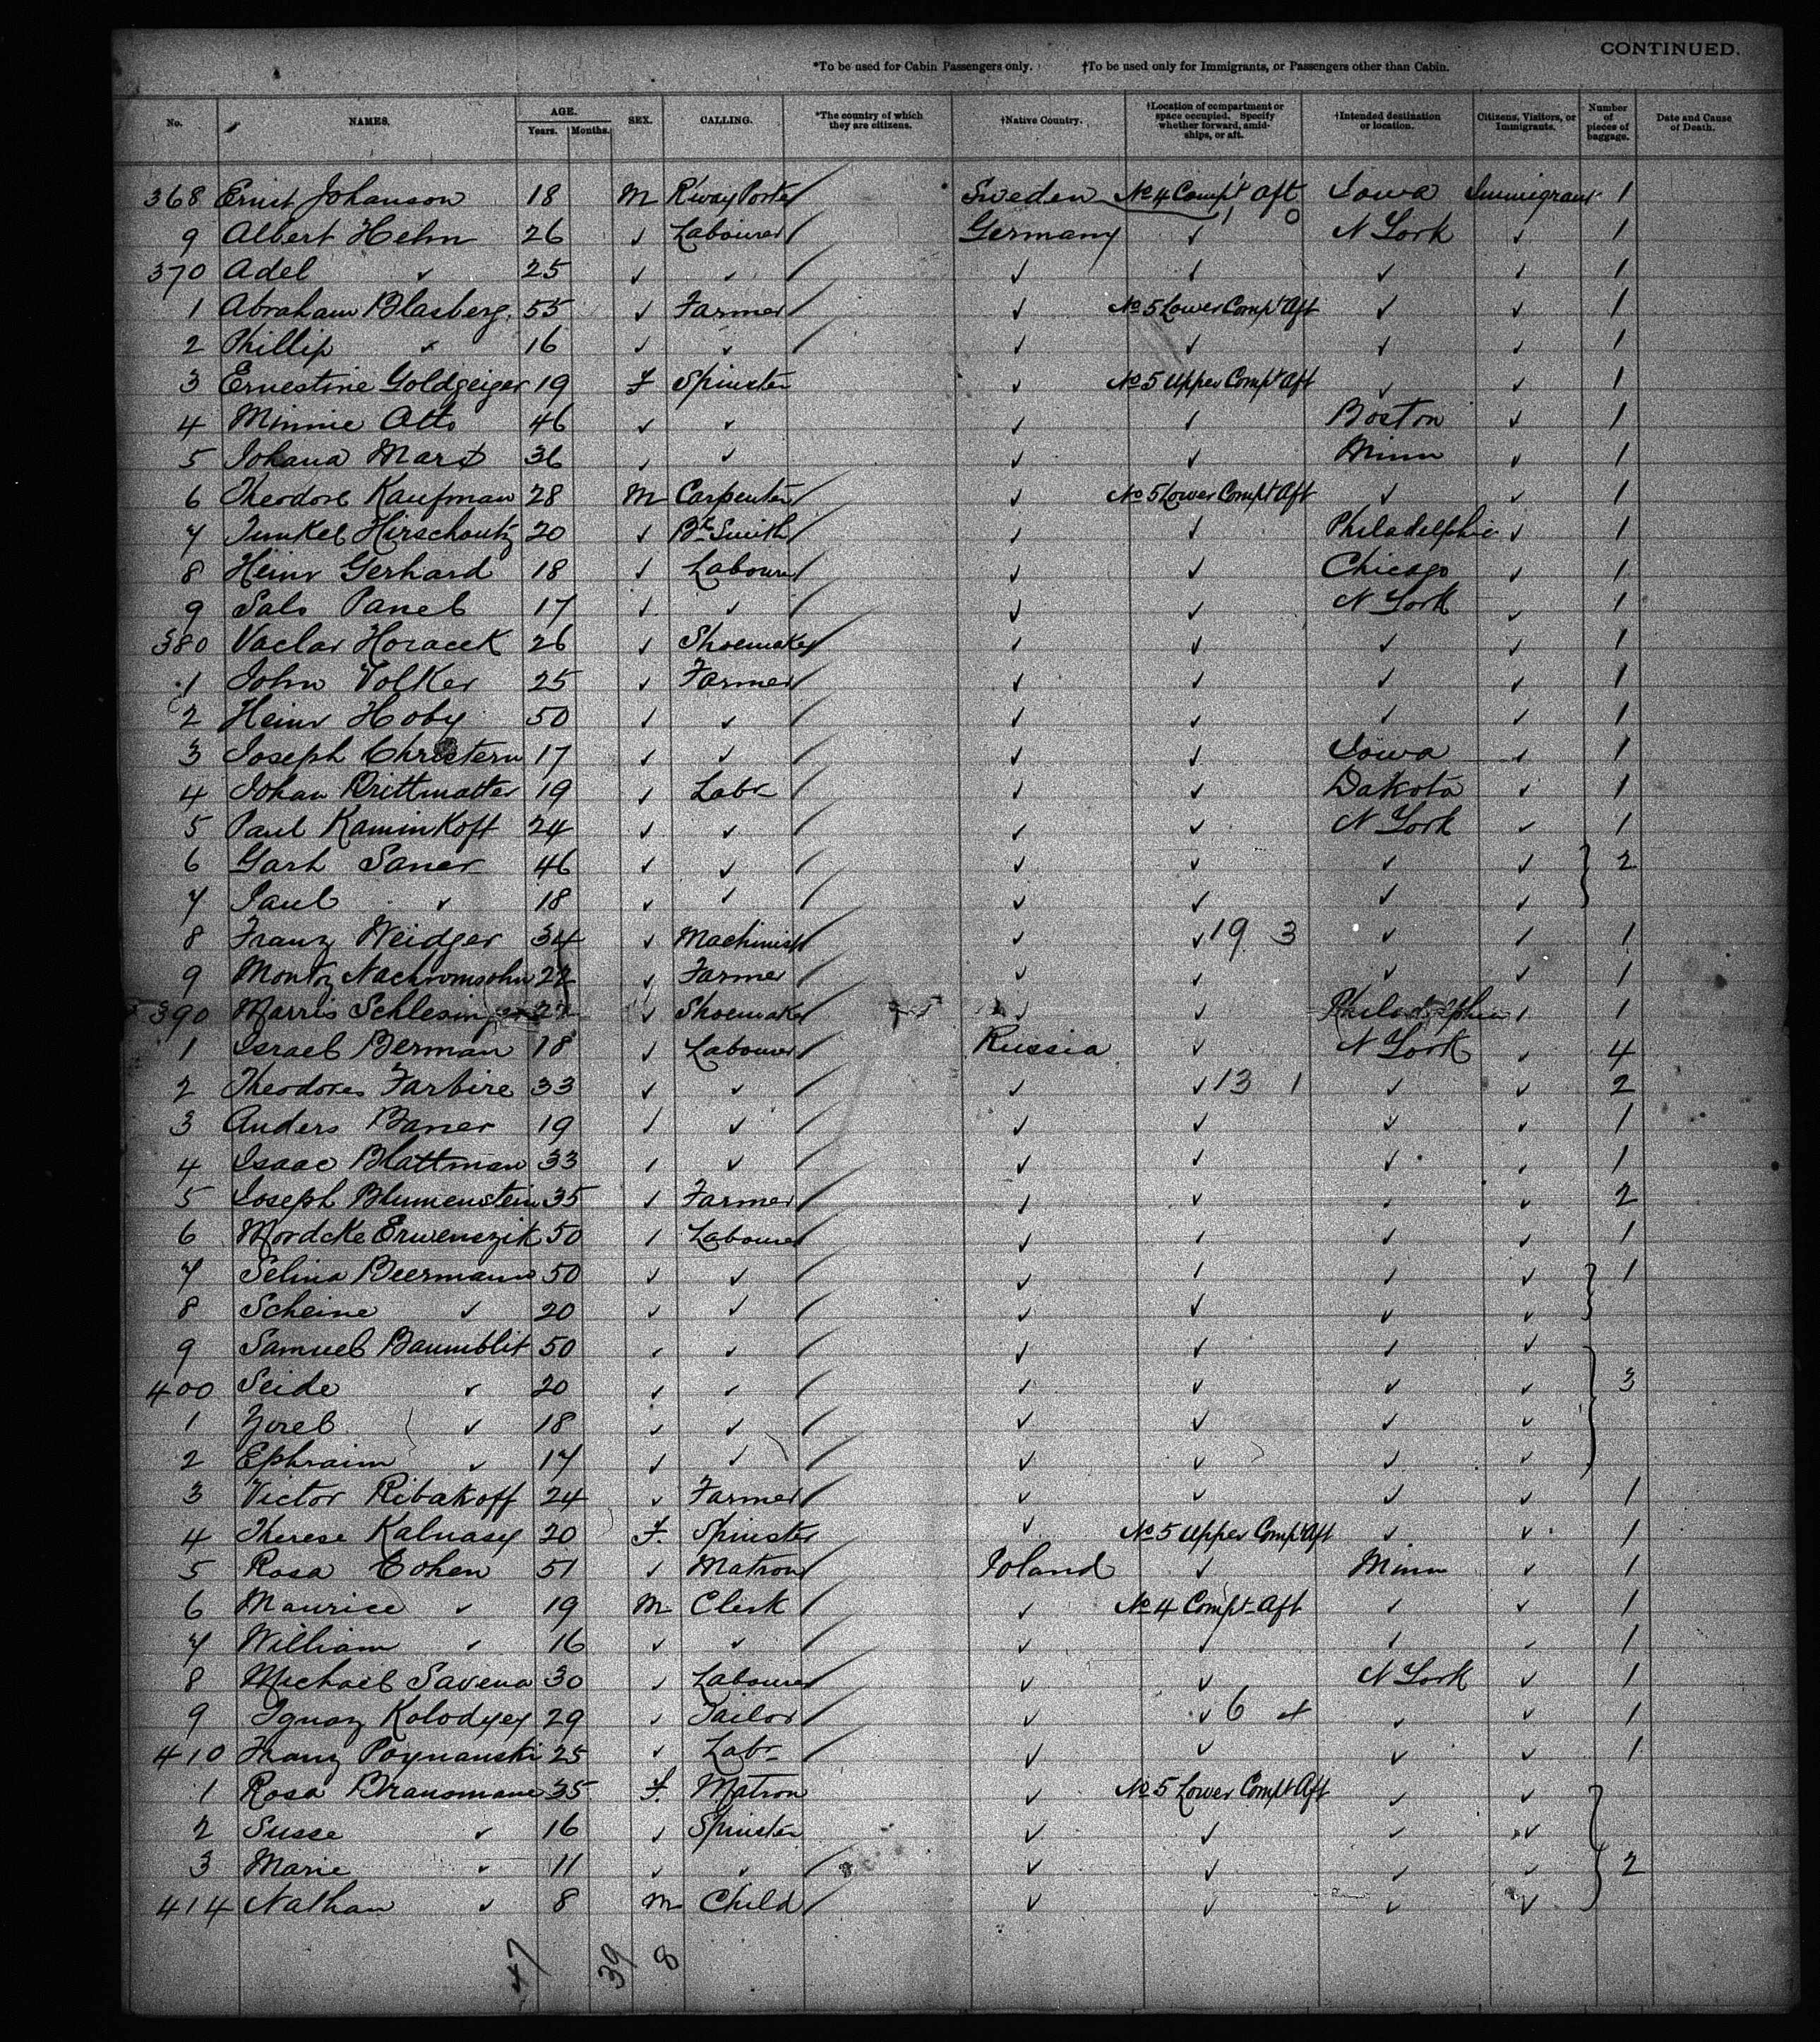 CONTINUED.
*To be used for Cabin Passengers only. †To be used only for Immigrants, or Passengers other than Cabin.
No. NAMES. AGE. Years. Months. SEX. CALLING. *The country of which they are citizens. †Native Country. †Location of compartment or space occupied. Specify whether forward, amidships, or aft. †Intended destination or location. Citizens, Visitors, or Immigrants. Number of pieces of baggage. Date and Cause of Death.
368 Ernst Johanson 18 M R'way Porter / Sweden No 4 Compt Aft Iowa Immigrant 1
9 Albert Hehn 26 ✓ Labourer / Germany ✓ N York ✓ 1
370 Adel ✓ 25 ✓ ✓ / ✓ ✓ ✓ ✓ 1
1 Abraham Blasberg. 55 ✓ Farmer / ✓ No 5 Lower Compt Aft ✓ ✓ 1
2 Phillip ✓ 16 ✓ ✓ / ✓ ✓ ✓ ✓ 1
3 Ernestine Goldgeiger 19 F Spinster ✓ No 5 Upper Compt Aft ✓ ✓ 1
4 Minnie Otto 46 ✓ ✓ ✓ ✓ Boston ✓ 1
5 Johana 36 ✓ ✓ ✓ ✓ Minn ✓ 1
6 Theodore Kaufman 28 M Carpenter / ✓ No 5 Lower Compt Aft ✓ ✓ 1
7 Junkel Hirschoutz 20 ✓ Bk Smith / ✓ ✓ Philadelphia ✓ 1
8 Heinr Gerhard 18 ✓ Labourer / ✓ ✓ Chicago ✓ 1
9 Salo Panel 17 ✓ ✓ / ✓ ✓ N York ✓ 1
380 Vaclav Horacek 26 ✓ Shoemaker / ✓ ✓ ✓ ✓ 1
1 John Volker 25 ✓ Farmer / ✓ ✓ ✓ ✓ 1
2 Heinr Hoby 50 ✓ ✓ / ✓ ✓ ✓ ✓ 1
3 Joseph Christern 17 ✓ ✓ / ✓ ✓ Iowa ✓ 1
4 Johan Drittmatter 19 ✓ Labr / ✓ ✓ Dakota ✓ 1
5 Paul Kaminkoff 24 ✓ ✓ / ✓ ✓ N York ✓ 1
6 Garh Saner 46 ✓ ✓ / ✓ ✓ ✓ ✓ } 2
7 Paul ✓ 18 ✓ ✓ / ✓ ✓ ✓ ✓
8 Franz Weidger 34 ✓ Machinist / ✓ ✓ 19 3 ✓ ✓ 1
9 Montz Nachromsohn 22 ✓ Farmer / ✓ ✓ ✓ ✓ 1
390 Marris Schlesinger ✓ Shoemaker / ✓ ✓ Philadelphia ✓ 1
1 Israel Berman 18 ✓ Labourer / Russia ✓ N York ✓ 4
2 Theodores Farbire 33 ✓ ✓ / ✓ ✓ 13 1 ✓ ✓ 2
3 Anders Baner 19 ✓ ✓ / ✓ ✓ ✓ ✓ 1
4 Isaac Blattman 33 ✓ ✓ / ✓ ✓ ✓ ✓ 1
5 Joseph Blumenstein 35 ✓ Farmer / ✓ ✓ ✓ ✓ 2
6 Mordcke Erwenczik 50 ✓ Labourer / ✓ ✓ ✓ ✓ 1
7 Selina Beermann 50 ✓ ✓ / ✓ ✓ ✓ ✓ } 1
8 Scheine ✓ 20 ✓ ✓ / ✓ ✓ ✓ ✓
9 Samuel Baumblit 50 ✓ ✓ / ✓ ✓ ✓ ✓
400 Seide ✓ 20 ✓ ✓ / ✓ ✓ ✓ ✓ } 3
1 Zorel ✓ 18 ✓ ✓ / ✓ ✓ ✓ ✓
2 Ephraim ✓ 17 ✓ ✓ / ✓ ✓ ✓ ✓
3 Victor Ribakoff 24 ✓ Farmer / ✓ ✓ ✓ ✓ 1
4 Therese Kalnasy 20 F. Spinster ✓ No 5 Upper Compt Aft ✓ ✓ 1
5 Rosa Cohen 51 ✓ Matron / Poland ✓ Minn ✓ 1
6 Maurice ✓ 19 M Clerk / ✓ No 4 Compt Aft ✓ ✓ 1
7 William ✓ 16 ✓ ✓ / ✓ ✓ ✓ ✓ 1
8 Michael Savena 30 ✓ Labourer / ✓ ✓ N York ✓ 1
9 Ignaz Kolodzey 29 ✓ Tailor / ✓ ✓ 6 ✓ ✓ 1
410 Franz Poynanski 25 ✓ Labr / ✓ ✓ ✓ ✓ 1
1 Rosa Bransmane 35 F. Matron ✓ No 5 Lower Compt Aft ✓ ✓
2 Susse ✓ 16 ✓ Spinster ✓ ✓ ✓ ✓
3 Marie ✓ 11 ✓ ✓ / ✓ ✓ ✓ ✓ } 2
414 Nathan ✓ 8 M Child / ✓ ✓ ✓ ✓
47 39 8